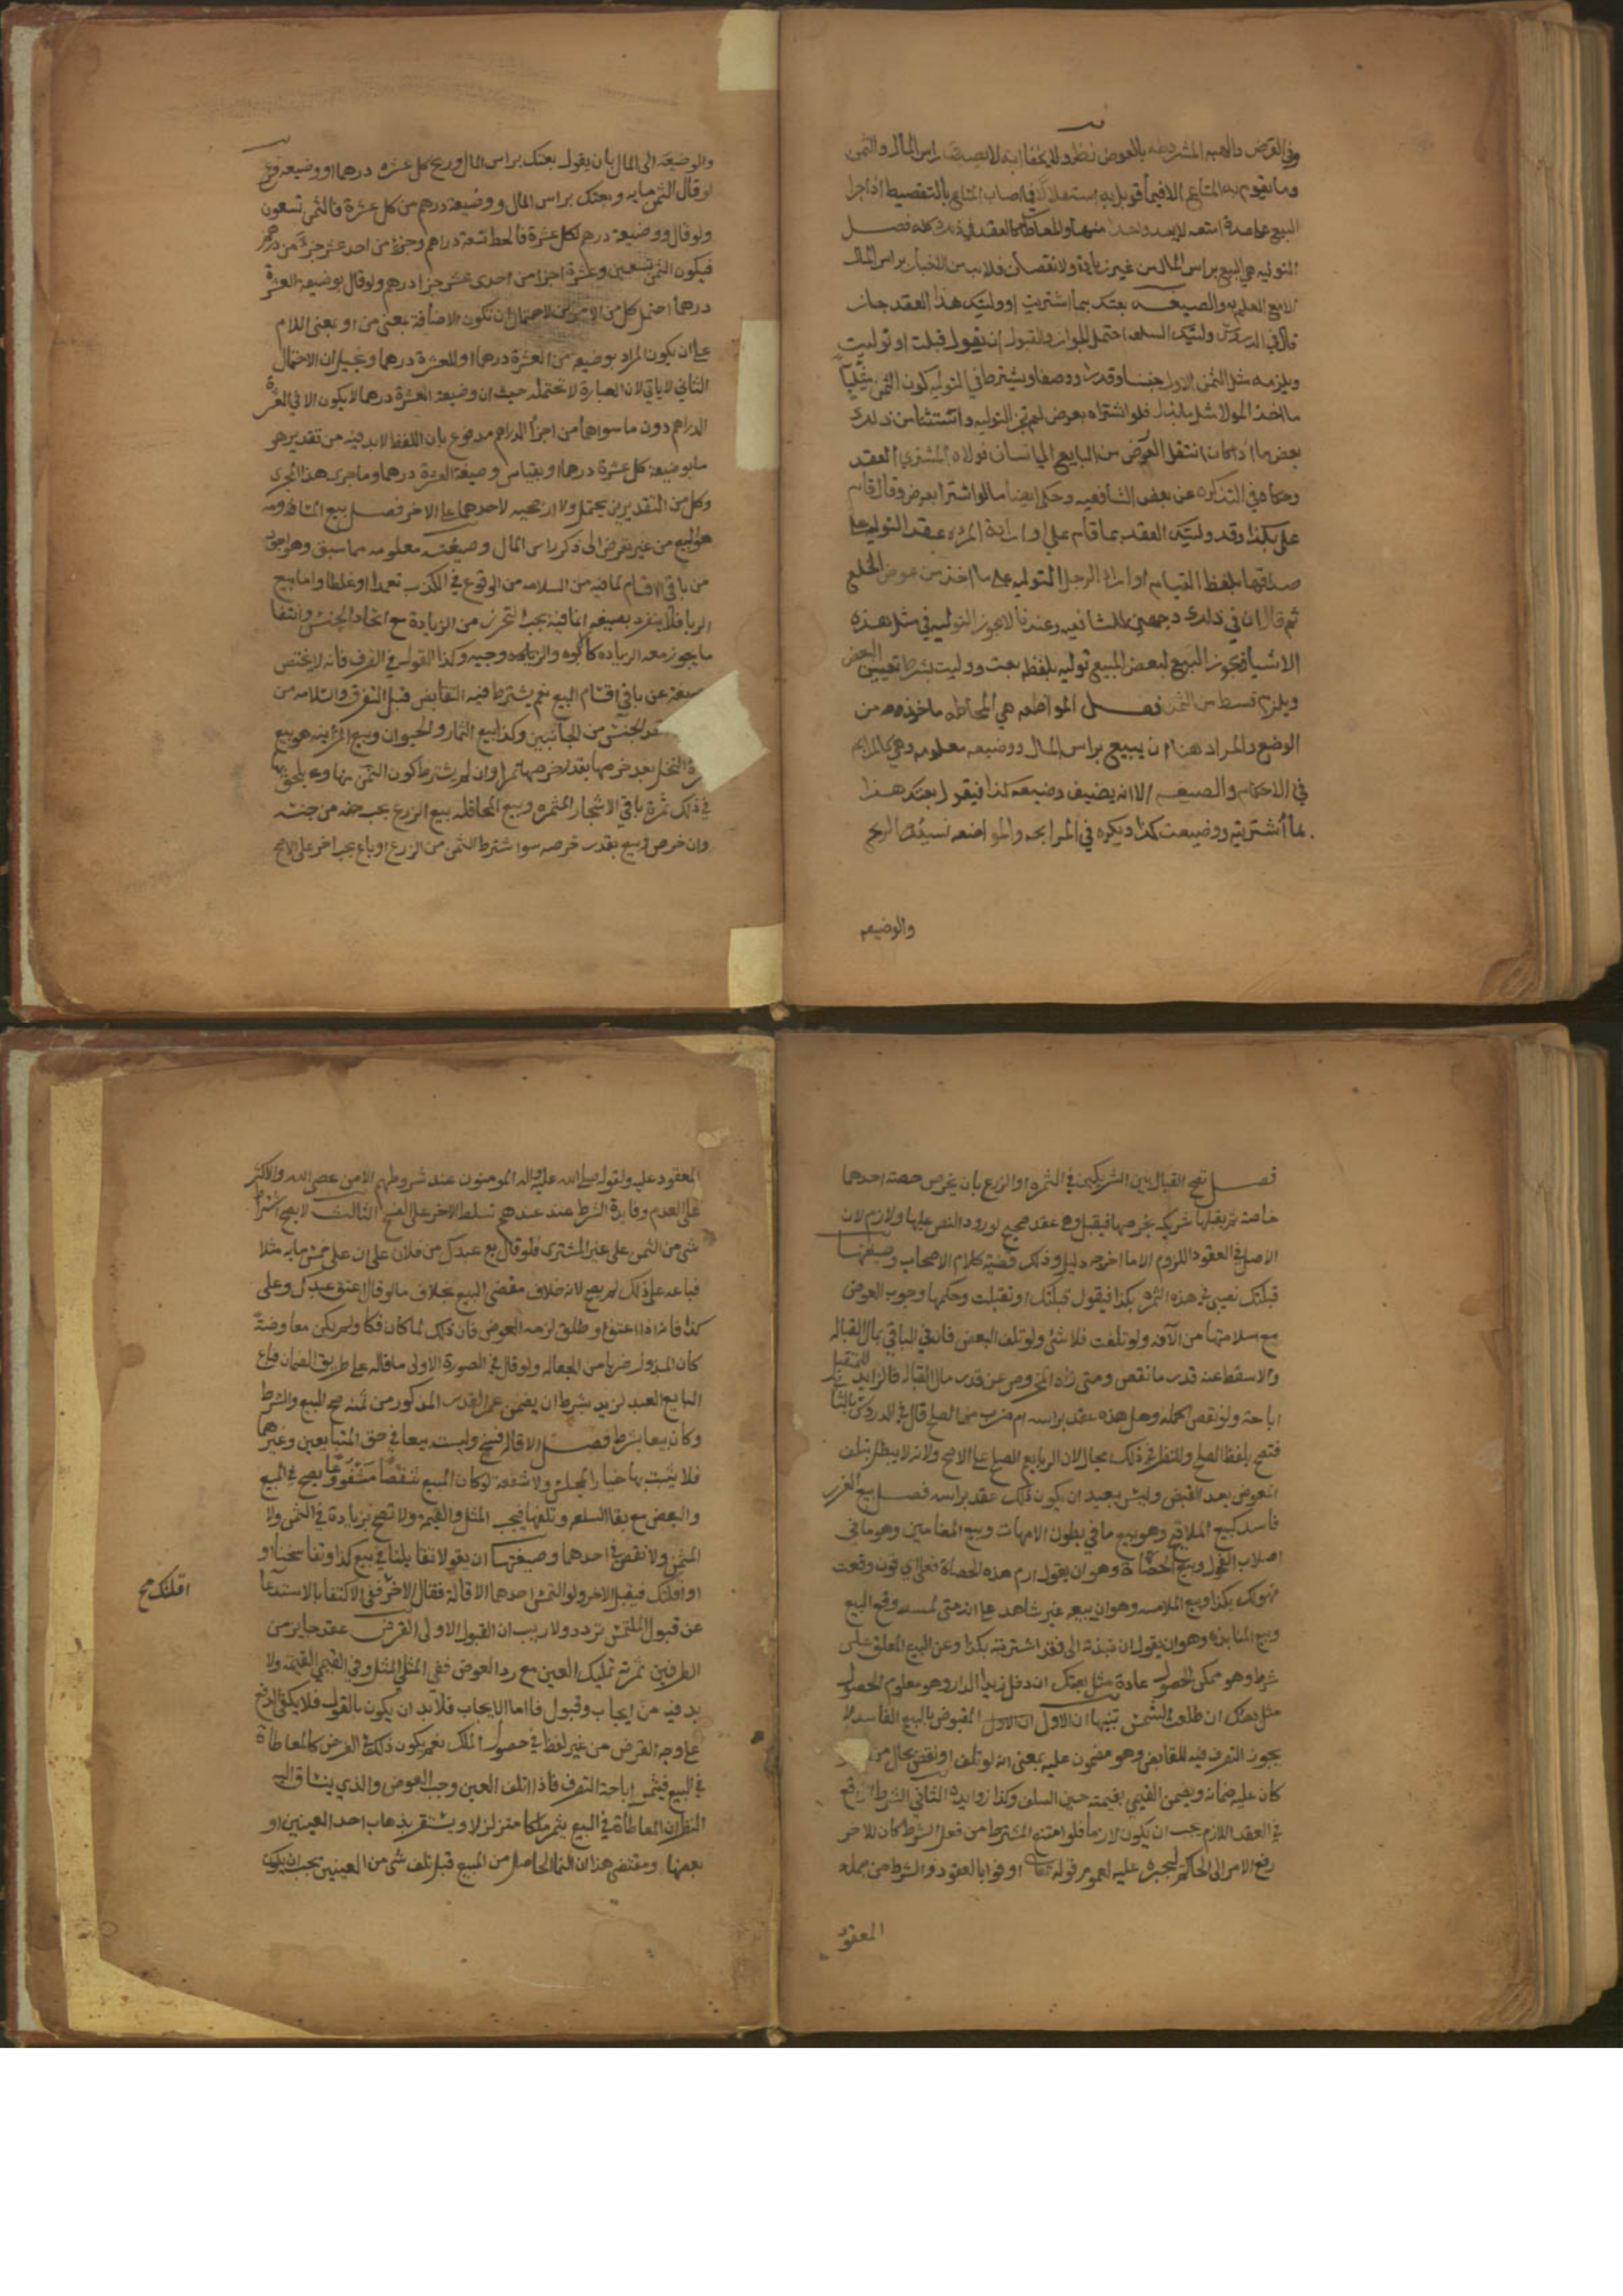 وفي القرض والهبه المشروطه بالعوض نظر ولا يخفا انه لا يصدق راس المال والثمن
وما تقوم به المتاع الا فيما قوبل به استقلالا في ابعاض المتاع بالتقسيط اذا جرا
البيع على عدة امتعه لا يعد واحدا منها والمعاطاة كالعقد في ذلك كله فصل
التوليه هي البيع براس المال من غير زيادة ولا نقصان فلا بد من الاخبار براس المال
الا مع العلم به والصيغه بعتك بما اشتريت او وليتك هذا العقد جاز
قال في الدروس وليتك السلعه احتمل الجواز والقبول ان يقول قبلت او توليت
ويلزمه مثل الثمن الاول جنسا وقدرا ووصفا ويشترط في التوليه كون الثمن مثليا
ما اخذ المولا مثل ما بذل فلو اشتراه بعوض لم تجز التوليه واستثنا من ذلك
بعض ما اذا كان انتقل العرض من البايع الي انسان فولاه المشتري العقد
وحكاه في التذكره عن بعض الشافعيه وحكي ايضا ما لو اشترا بعرض وقال قام
علي بكذا وقد وليتك العقد بما قام علي او ارادة المراه عقد التوليه علي
صداقها بلفظ القيام او اراد الرجل التوليه على ما اخذ من عوض الخلع
ثم قال ان في ذلك وجهين للشافعيه وعندنا لا يجوز التوليه في مثل هذه
الاشيا فيجوز البيع لبعض المبيع توليه بلفظ بعت ووليت بشرط تعيين البعض
ويلزم قسط من الثمن فصل المواضعه هي المحاطه ماخوذه من
الوضع والمراد هنا ان يبيع براس المال ووضيعه معلومه وهي كالمرابحه
في الاحكام والصيغه الا انه يضيف وضيعه كذا فيقول بعتك هذا
بما اشتريته ووضيعت كذا ويكره في المرابحه والمواضعه نسبة الربح
والوضيعه
والوضيعه الى المال بان يقول بعتك براس المال وربح كل عشره درهما او وضيعه فرع
لو قال الثمن مايه وبعتك براس المال ووضيعة درهم من كل عشرة فالثمن تسعون
ولو قال ووضيعة درهم لكل عشرة فالحط تسعة دراهم وجزء من احد عشر جزءً من درهم
فيكون الثمن تسعين وعشرة اجزا من احدى عشر جزا درهم ولو قال بوضيعة العشرة
درهما احتمل كل من الامرين لاحتمال ان تكون الاضافة بمعنى من او بمعنى اللام
على ان يكون المراد بوضيعة من العشرة درهما او للعشرة درهما وتخيل ان الاحتمال
الثاني لا ياتي لان العبارة لا تحتمله حيث ان وضيعة العشرة درهما لا يكون الا في العشرة
الدراهم دون ما سواها من اجزا الدراهم مدفوع بان اللفظ لا بد فيه من تقدير هو
ما بوضيعة كل عشرة درهما او بقياس وضيعة العشرة درهما وما جرى هذا المجرى
وكل من التقديرين يحتمل ولا ارجحيه لاحدهما على الاخر فصل بيع المساومه
هو البيع من غير تعرض الى ذكر راس المال وصيغته معلومه مما سبق وهو اجود
من باقي الاقسام لما فيه من السلامه من الوقوع في الكذب تعمدا او غلطا واما بيع
الربا فلا ينفرد بصيغه انما فيه يجب التحرز من الزيادة مع اتحاد الجنس وانتفا
ما يجوز معه الزياده كالابوه والزوجيه وكذا القول في الصرف فانه لا يختص
بصيغة عن باقي اقسام البيع نعم يشترط فيه التقابض قبل التفرق والسلامه من
الجنس من الجانبين وكذا بيع الثمار والحيوان وبيع المزابنه هو بيع
ثمرة النخل بعد خرصها بقدر خرصها تمرا وان لم يشترط كون الثمن منها وهل يلحق بها
في ذلك ثمرة باقي الاشجار المثمره وبيع المحاقله بيع الزرع بحب حصد من جنسه
وان خرص وبيع بقدر خرصه سوا اشترط الثمن من الزرع او باع بحب اخر على الاصح
فصل تصح القباله بين الشريكين في الثمره او الزرع بان يخرص حصة احدهما
خاصة ثم يقبلها شريكه بخرصها فيقبل وهي عقد صحيح لورود النص عليها ولازم لان
الاصل في العقود اللزوم الا ما اخرجه دليل وذلك قضية كلام الاصحاب وصيغتها
قبلتك نصيبي في هذه الثمره بكذا فيقول قبلتك او تقبلت وحكمها وجوب العوض
مع سلامتها من الآفه ولو تلفت فلا شئ ولو تلف البعض فان في الباقي بمال القباله
والا سقط عنه قدر ما نقص ومتى زاد المخروص عن قدر مال القباله فالزايد للمتقبل
اباحة ولو نقص اكمله وهل هذه عقد براسه ام ضرب من الصلح قال في الدروس بالثاني
فتصح بلفظ الصلح وللنظر في ذلك مجال لان الربا يعم الصلح على الاصح ولانه لا يبطل بتلف
المعوض بعد القبض وليس ببعيد ان يكون ذلك عقد براسه فصل بيع الغرر
فاسد كبيع الملاقيح وهو بيع ما في بطون الامهات وبيع المضامين وهو ما في
اصلاب الفحول وبيع الحصاة وهو ان يقول ارم هذه الحصاة فعلي اي ثوب وقعت
فهو لك بكذا وبيع الملامسه وهو ان يبيعه غير شاهد على انه متى لمسه وقع البيع
وبيع المنابذه وهو ان يقول ان نبذته الى فقد اشتريته بكذا وعن البيع المعلق على
شرط وهو ممكن الحصول عادة مثل بعتك ان دخل زيد الدار وهو معلوم الحصول
مثل بعتك ان طلعت الشمس تنبيهان الاول المقبوض بالبيع الفاسد لا
يجوز التصرف فيه للقابض وهو مضمون عليه بمعنى انه لو تلف او نقص بحال من
كان عليه ضمانه ويضمن القيمي بقيمته حين التلف وكذا زوايده الثاني الشرط الواقع
في العقد اللازم يجب ان يكون لازما فلو امتنع المشترط من فعل الشرط كان للاخر
رفع الامر الى الحاكم ليجبره عليه لعموم قوله تعالى اوفوا بالعقود والشرط من جمله
المعقود
المعقود عليه ولقوله صلى الله عليه واله المومنون عند شروطهم الا من عصى الله والاكثر
على العدم وفايدة الشرط عندهم تسلط الاخر على الفسخ الثالث لا يصح اشتراط
شى من الثمن على غير المشترى فلو قال بع عبدك من فلان على ان على خمس مايه مثلا
فباعه على ذلك لم يصح لانه خلاف مقتضى البيع بخلاف ما لو قال اعتق عبدك وعلى
كذا فانه اذا اعتق او طلق لزمه العوض فان ذلك لما كان فكا ولم يكن معاوضة
كان المبذول ضربا من الجعاله ولو قال في الصورة الاولى ما قاله على طريق الضمان فباع
البايع العبد لزيد بشرط ان يضمن عمر القدر المذكور من ثمنه صح البيع والشرط
وكان بيعا بشرط فصل الاقاله فسخ وليست بيعا في حق المتبايعين وغيرهما
فلا يثبت بها خيار المجلس ولا شفعة لو كان المبيع شقصا مشفوعا يصح في المبيع
والبعض مع بقا السلعه وتلفها فيجب المثل والقيمه ولا تصح بزيادة في الثمن ولا
المثمن ولا نقص في احدهما وصيغتها ان يقولا تقايلنا في بيع كذا او تفاسخنا او
او اقلتك فيقبل الاخر ولو التمس احدهما الاقالة فقال الاخر ففي الاكتفا بالاستدعا
اقلتك صح
عن قبول الملتمس تردد ولا ريب ان القبول الاولى القرض عقد جايز من
الطرفين ثمرته تمليك العين مع رد العوض ففي المثلي المثل وفي القيمي القيمه ولا
بد فيه من ايجاب وقبول فاما الايجاب فلا بد ان يكون بالقول فلا يكفي الدفع
على وجه القرض من غير لفظ في حصول الملك نعم يكون ذلك في القرض كالمعاطاة
في البيع فيثمر اباحة التصرف فاذا تلف العين وجب العوض والذي ينساق اليه
النظر ان المعاطاة في البيع يثمر ملكا متزلزلا ويستقر بذهاب احد العينين او
بعضها ومقتضى هذا ان النما الحاصل من المبيع قبل تلف شى من العينين يجب ان يكون